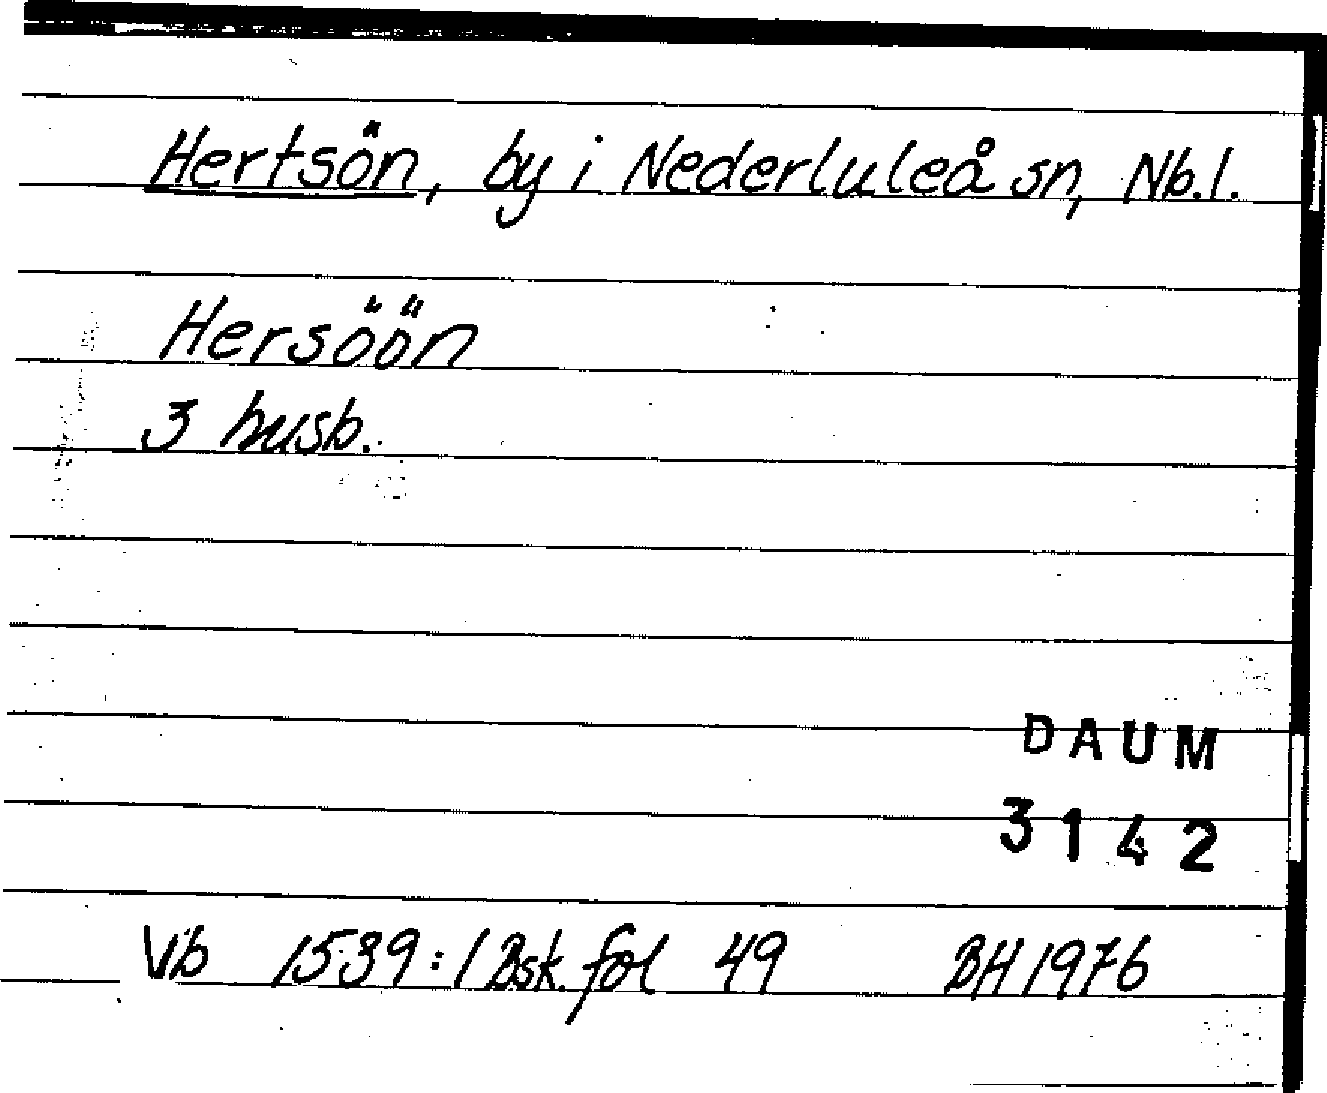 Hertsön, by i Nederluleå sn, Nb.l.
Hersöön
3 husb.
DAUM
3142
Vb 1539:1 Bsk. fol 49 BH 1976